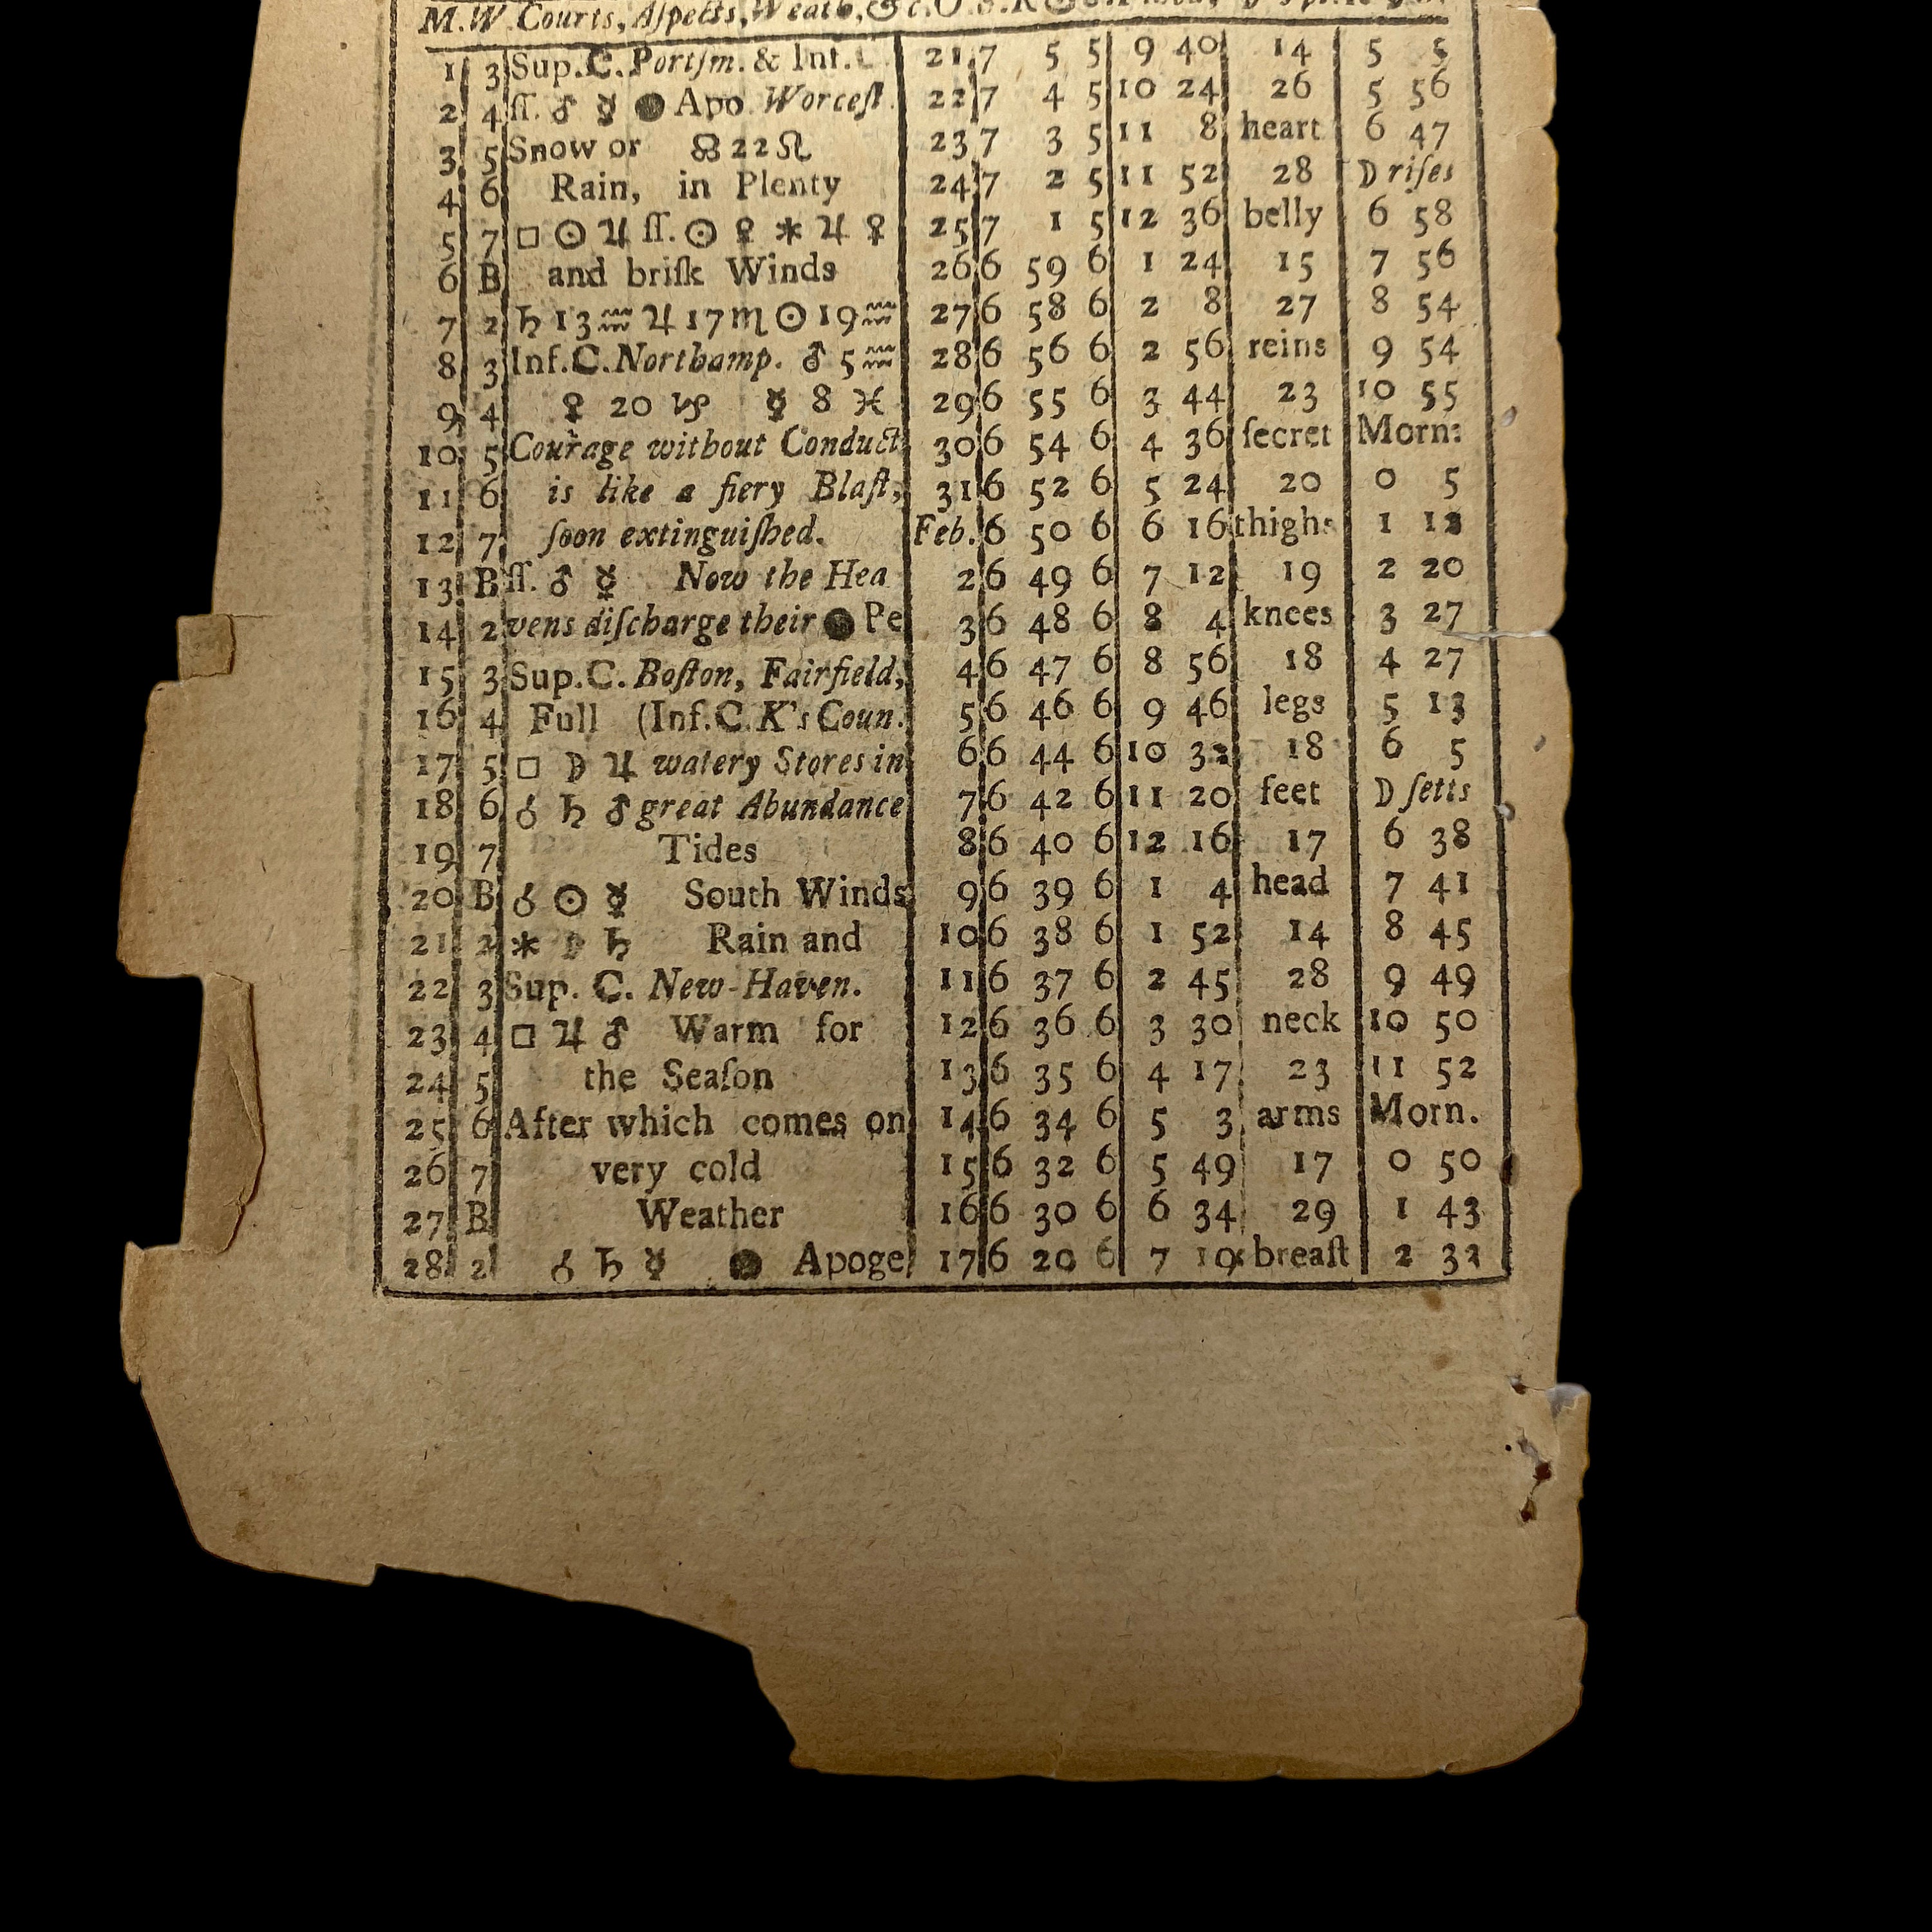 M.W. Courts, Aſpects, Weath, &c. O.S. R
1 3 Sup.C. Portſm. & Inf. C 21 7 5 5 9 40 14 5 5
2 4 ſſ. ♂ ☿ ● Apo Worceſt. 22 7 4 5 10 24 26 5 56
3 5 Snow or ☊ 22 ♌ 23 7 3 5 11 8 heart 6 47
4 6 Rain, in Plenty 24 7 2 5 11 52 28 ☽ riſes
5 7 □ ☉ ♃ ſſ. ☉ ♀ ⚹ ♃ ♀ 25 7 1 5 12 36 belly 6 58
6 B and briſk Winds 26 6 59 6 1 24 15 7 56
7 2 ♄ 13 ♒ ♃ 17 ♏ ☉ 19 ♒ 27 6 58 6 2 8 27 8 54
8 3 Inf.C. Northamp. ♂ 5 ♒ 28 6 56 6 2 56 reins 9 54
9 4 ♀ 20 ♑ ☿ 8 ♓ 29 6 55 6 3 44 23 10 55
10 5 Courage without Conduct 30 6 54 6 4 36 ſecret Morn:
11 6 is like a fiery Blaſt, 31 6 52 6 5 24 20 0 5
12 7 ſoon extinguiſhed. Feb. 6 50 6 6 16 thighs 1 12
13 B ſſ. ♂ ☿ Now the Hea 2 6 49 6 7 12 19 2 20
14 2 vens diſcharge their ● Pe 3 6 48 6 8 4 knees 3 27
15 3 Sup.C. Boſton, Fairfield, 4 6 47 6 8 56 18 4 27
16 4 Full (Inf.C. K's Coun. 5 6 46 6 9 46 legs 5 13
17 5 □ ☽ ♃ watery Stores in 6 6 44 6 10 32 18 6 5
18 6 ☌ ♄ ♂ great Abundance 7 6 42 6 11 20 feet ☽ ſetts
19 7 Tides 8 6 40 6 12 16 17 6 38
20 B ☌ ☉ ☿ South Winds 9 6 39 6 1 4 head 7 41
21 2 ⚹ ☽ ♄ Rain and 10 6 38 6 1 52 14 8 45
22 3 Sup. C. New-Haven. 11 6 37 6 2 45 28 9 49
23 4 □ ♃ ♂ Warm for 12 6 36 6 3 30 neck 10 50
24 5 the Seaſon 13 6 35 6 4 17 23 11 52
25 6 After which comes on 14 6 34 6 5 3 arms Morn.
26 7 very cold 15 6 32 6 5 49 17 0 50
27 B Weather 16 6 30 6 6 34 29 1 43
28 2 ☌ ♄ ☿ ● Apoge 17 6 20 6 7 19 breaſt 2 32